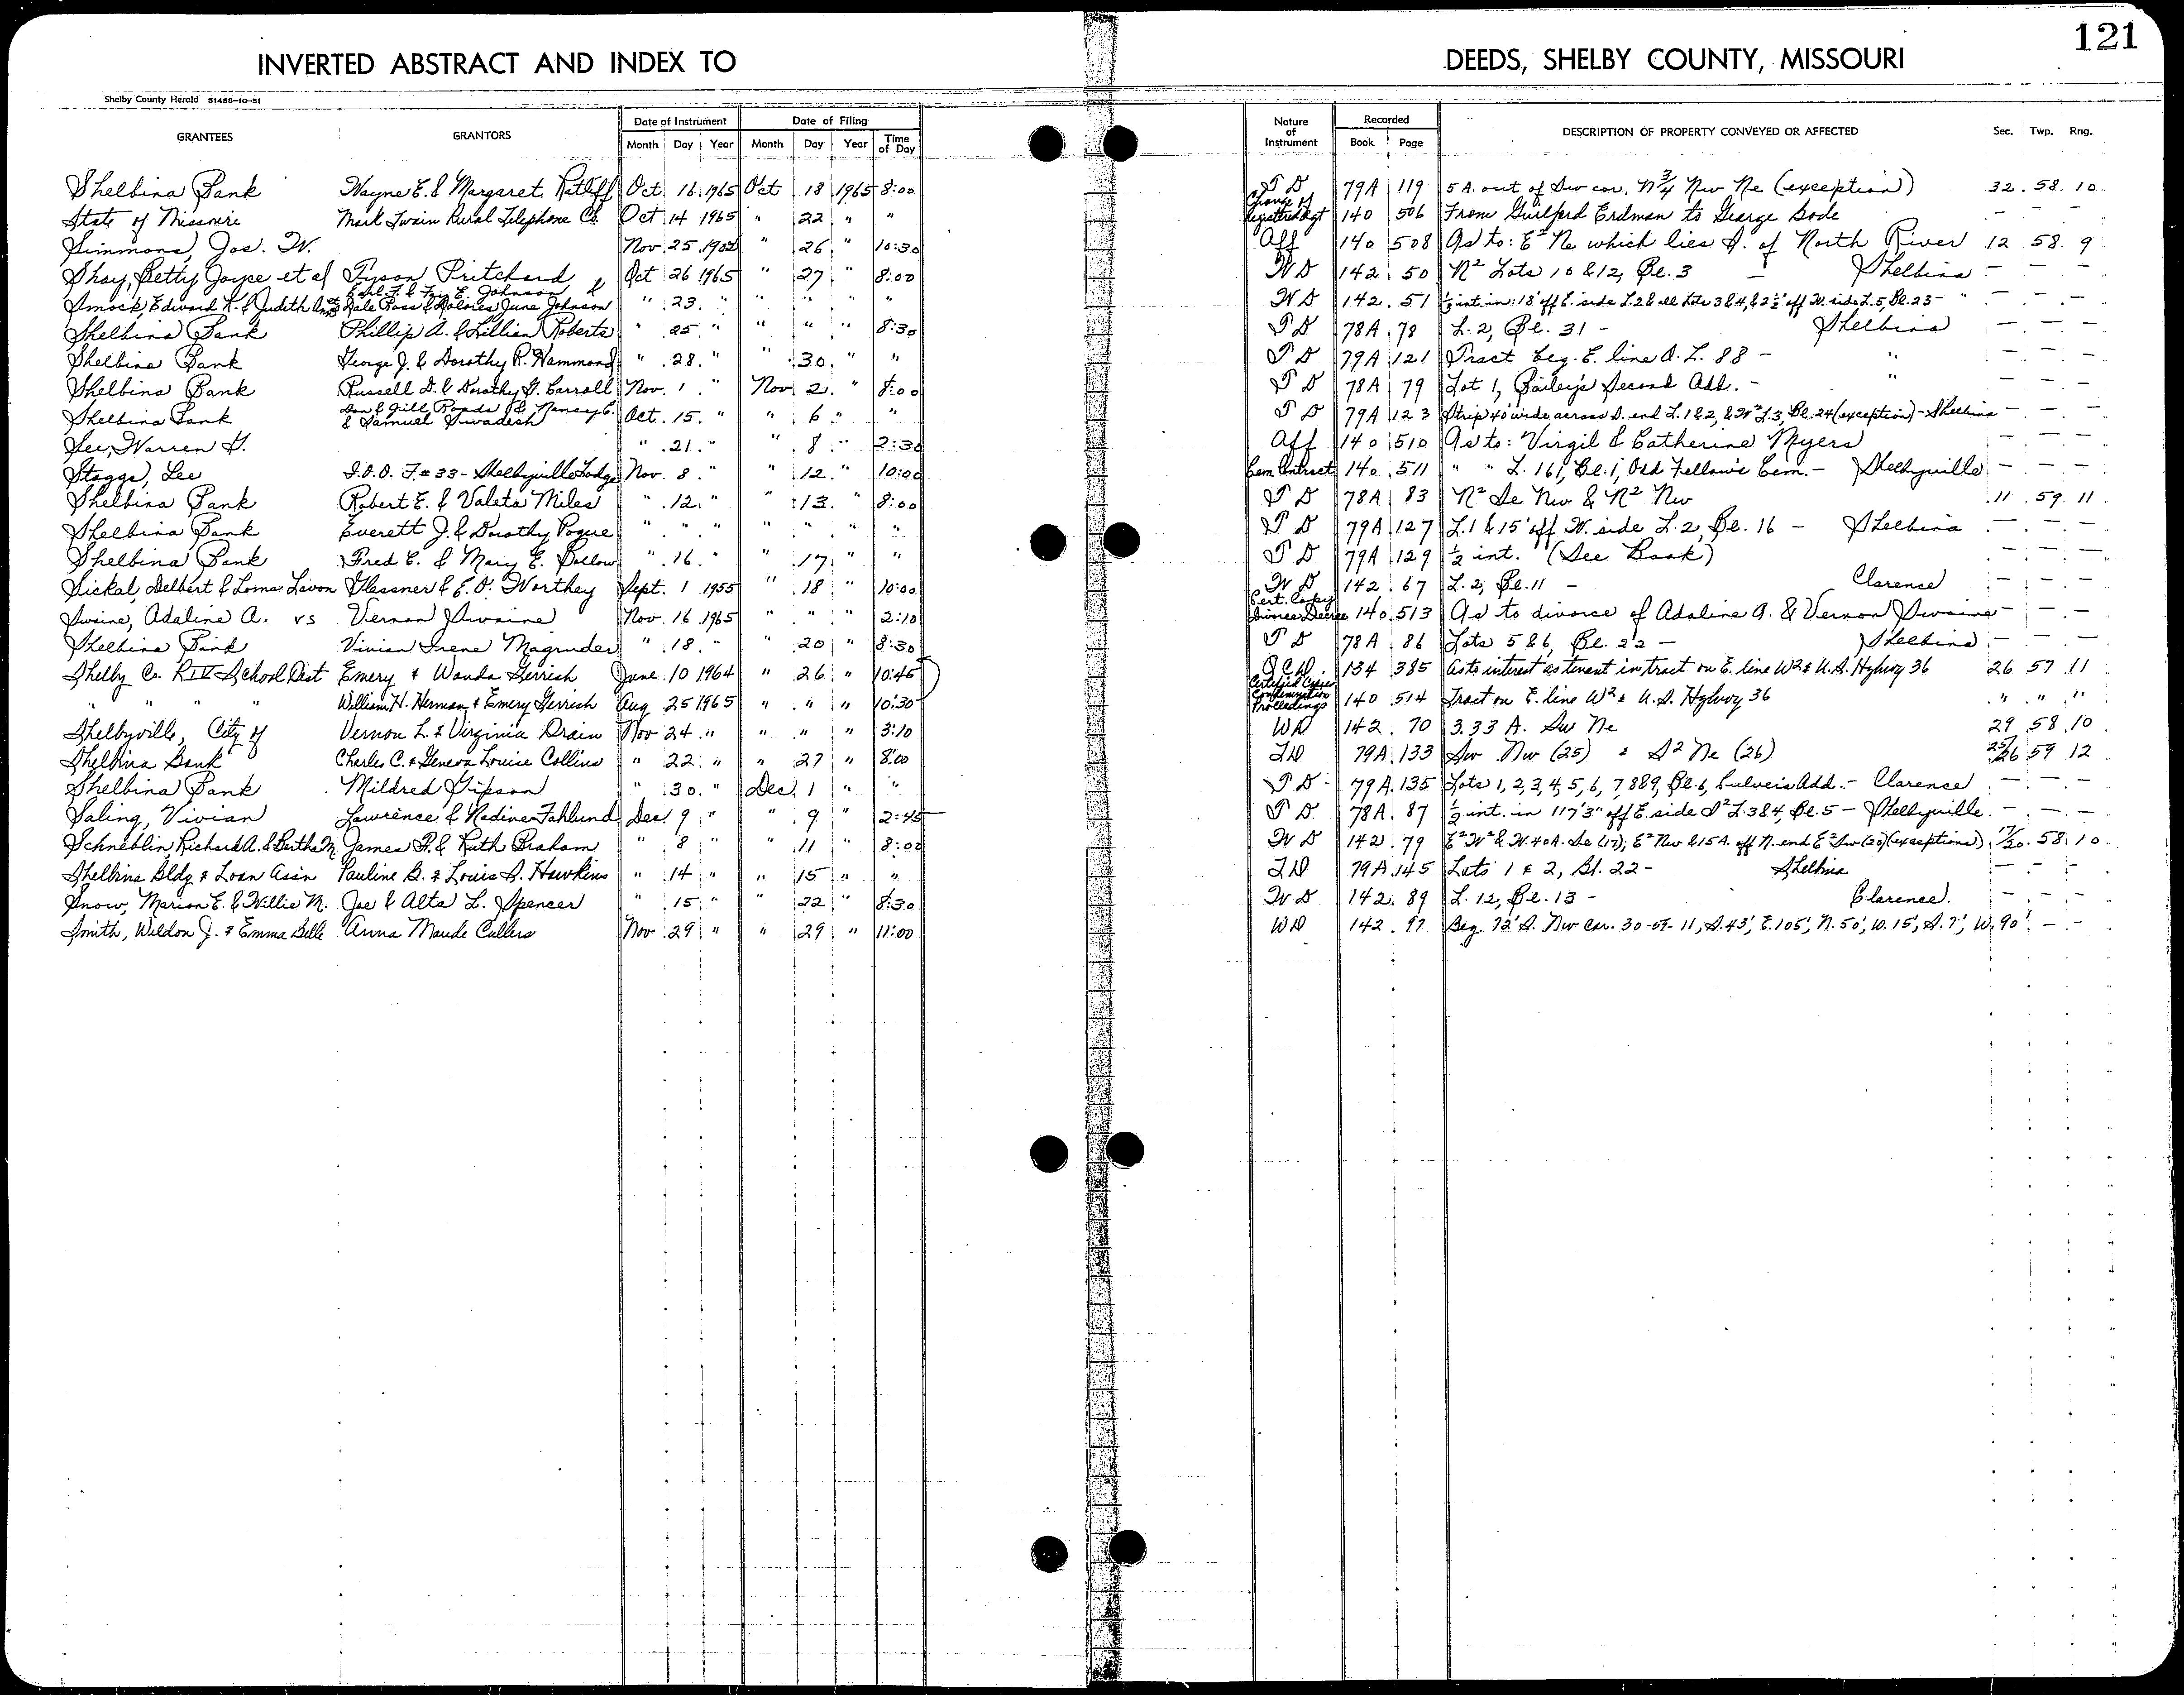 121
INVERTED ABSTRACT AND INDEX TO DEEDS, SHELBY COUNTY, MISSOURI
Shelby County Herald 51488-10-51
GRANTEES GRANTORS Date of Instrument Date of Filing Nature of Instrument Recorded DESCRIPTION OF PROPERTY CONVEYED OR AFFECTED Sec. Twp. Rng.
Month Day Year Month Day Year Time of Day Book Page
Shelbina Bank Wayne E. & Margaret Ratliff Oct. 16 1965 Oct 18 1965 8:00 T D 79A 119 5 A. out of Sw cor. N 3/4 Nw Ne (exception) 32 58 10
State of Missouri Mark Twain Rural Telephone Co. Oct 14 1965 " 22 " " Change of Registered Agt 140 506 From Guilford Erdman to George Bode — — —
Simmons, Jos. W. Nov. 25 1902 " 26 " 10:30 Aff 140 508 As to: E² Ne which lies S. of North River 12 58 9
Shay, Betty Joyce et al Tyson Pritchard Oct 26 1965 " 27 " 8:00 W D 142 50 N² Lots 10 & 12, Bl. 3 — Shelbina — — —
Smock, Edward K. & Judith Ann Earl F. & E. Johnson & Dale Ross & Dolores June Johnson " 23 " " " " " W D 142 51 ½ int. in: 18' off E. side L. 2 & all Lots 3 & 4, & 2½' off W. side L. 5, Bl. 23 — " — — —
Shelbina Bank Phillip A. & Lillian Roberts " 25 " " " " 8:30 T D 78A 78 L. 2, Bl. 31 — Shelbina — — —
Shelbina Bank George J. & Dorothy R. Hammond " 28 " " 30 " " T D 79A 121 Tract beg. E. line O. L. 88 — " — — —
Shelbina Bank Russell D. & Dorothy G. Carroll Nov. 1 " Nov. 2 " 8:00 T D 78A 79 Lot 1, Bailey's Second Add. — " — — —
Shelbina Bank Don & Jill Roads & Nancy C. & Samuel Swadesh Oct. 15 " " 6 " " T D 79A 123 Strip 40' wide across S. end L. 1 & 2, & W² L. 3, Bl. 24 (exception) — Shelbina — — —
See, Warren G. " 21 " " 8 " 2:30 Aff 140 510 As to: Virgil & Catherine Myers — — —
Staggs, Lee I.O.O.F. #33 - Shelbyville Lodge Nov. 8 " " 12 " 10:00 Cem. Contract 140 511 " " L. 161, Bl. 1, Odd Fellow's Cem. — Shelbyville — — —
Shelbina Bank Robert E. & Valeta Miles " 12 " " 13 " 8:00 T D 78A 83 N² Se Nw & N² Nw 11 59 11
Shelbina Bank Everett J. & Dorothy Pogue " " " " " " " T D 79A 127 L. 1 & 15' off W. side L. 2, Bl. 16 — Shelbina — — —
Shelbina Bank Fred E. & Mary E. Bollow " 16 " " 17 " " T D 79A 129 ½ int. (See Book) — — —
Sickal, Delbert & Loma Lavon Glassner & E. O. Worthey Sept. 1 1955 " 18 " 10:00 W D 142 67 L. 2, Bl. 11 — Clarence — — —
Swaine, Adaline A. vs Vernon Swaine Nov. 16 1965 " " " 2:10 Cert. Copy Divorce Decree 140 513 As to divorce of Adaline A. & Vernon Swaine — — —
Shelbina Bank Vivian Irene Magruder " 18 " " 20 " 8:30 T D 78A 86 Lots 5 & 6, Bl. 22 — Shelbina — — —
Shelby Co. R IV School Dist Emery & Wanda Gerrish June 10 1964 " 26 " 10:45 Q C D 134 385 As to interest as tenant in tract on E. line W² & U.S. Hghwy 36 26 57 11
" " " " William H. Herman & Emery Gerrish Aug 25 1965 " " " 10:30 Certified Copies Condemnation Proceedings 140 514 Tract on E. line W² & U.S. Hghwy 36 " " "
Shelbyville, City of Vernon L. & Virginia Drain Nov 24 " " " " 3:10 WD 142 70 3.33 A. Sw Ne 29 58 10
Shelbina Bank Charles C. & Geneva Louise Collins " 22 " " 27 " 8:00 TD 79A 133 Sw Nw (25) & S² Ne (26) 25/26 59 12
Shelbina Bank Mildred Gipson " 30 " Dec. 1 " " T D 79A 135 Lots 1, 2, 3, 4, 5, 6, 7, 8 & 9, Bl. 6, Culver's Add. — Clarence — — —
Saling, Vivian Lawrence & Nadine Fahlund Dec. 9 " " 9 " 2:45 T D 78A 87 ½ int. in 117'3" off E. side S² L. 3 & 4, Bl. 5 — Shelbyville — — —
Schneblin, Richard A. & Bertha M. James F. & Ruth Graham " 8 " " 11 " 8:00 W D 142 79 E² W² & W. 40 A. Se (17); E² Nw & 15 A. off N. end E² Sw (20) (exceptions) 17/20 58 10
Shelbina Bldg & Loan Ass'n Pauline B. & Louis S. Hawkins " 14 " " 15 " " TD 79A 145 Lots 1 & 2, Bl. 22 — Shelbina — — —
Snow, Marion E. & Willie M. Joe & Alta L. Spencer " 15 " " 22 " 8:30 W D 142 89 L. 12, Bl. 13 — Clarence — — —
Smith, Weldon J. & Emma Belle Anna Maude Cullers Nov 29 " " 29 " 11:00 WD 142 97 Beg. 72' S. Nw cor. 30-59-11, S. 43', E. 105', N. 50', W. 15', S. 7', W. 90' — — —